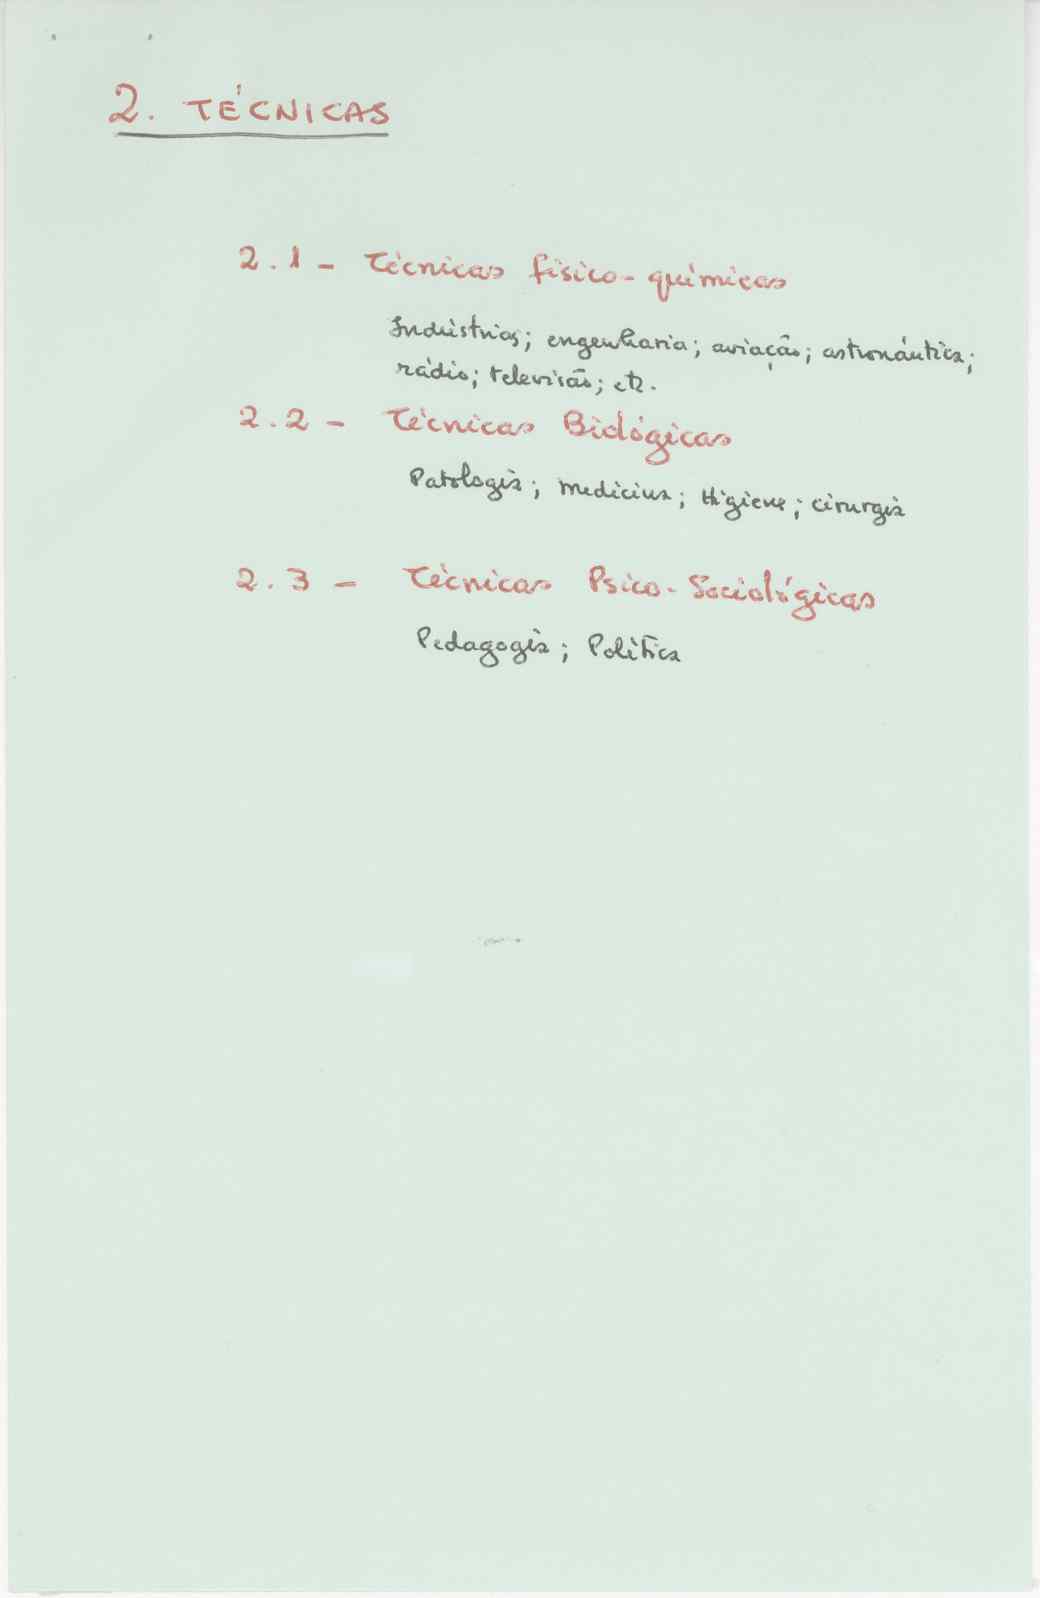 2. TÉCNICAS
2.1 - Técnicas físico-químicas
Indústrias; engenharia; aviação; astronáutica;
rádio; televisão; etc.
2.2 - Técnicas Biológicas
Patologia; medicina; Higiene; cirurgia
2.3 - Técnicas Psico-Sociológicas
Pedagogia; Política